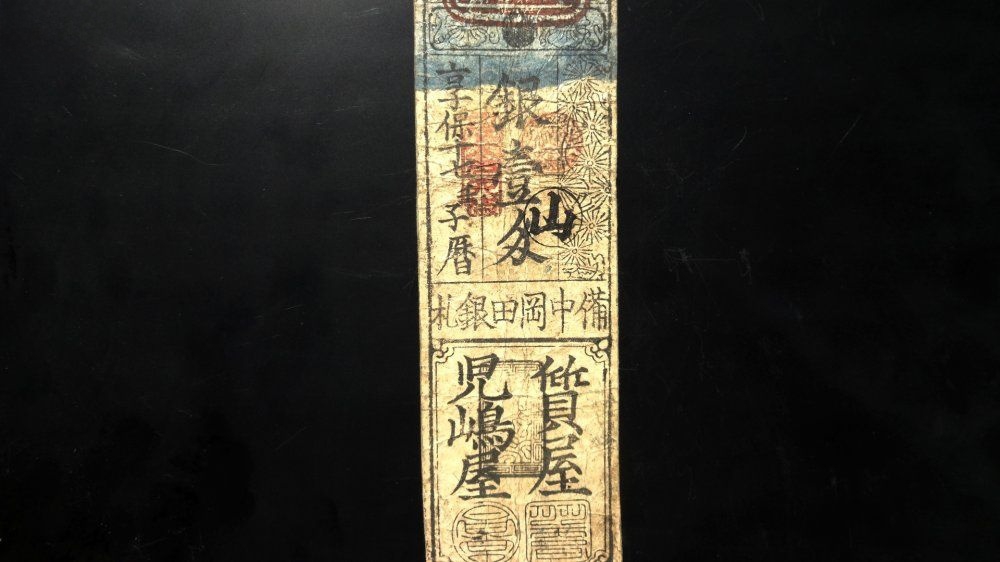 銀壹匁
仙
享保十七壬子暦
備中岡田銀札
質屋
児嶋屋